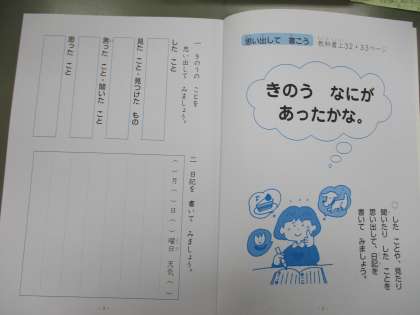 思い出して　書こう
教科書上32・33ページ
きのう　なにが
あったかな。
○した　ことや、見たり
聞いたり　した　ことを
思い出して、日記を
書いて　みましょう。
一　きのうの　ことを
思い出して　みましょう。
した　こと
見た　こと・見つけた　もの
言った　こと・聞いた　こと
思った　こと
二　日記を　書いて　みましょう。
（　）月（　）日（　）曜日　天気（　）